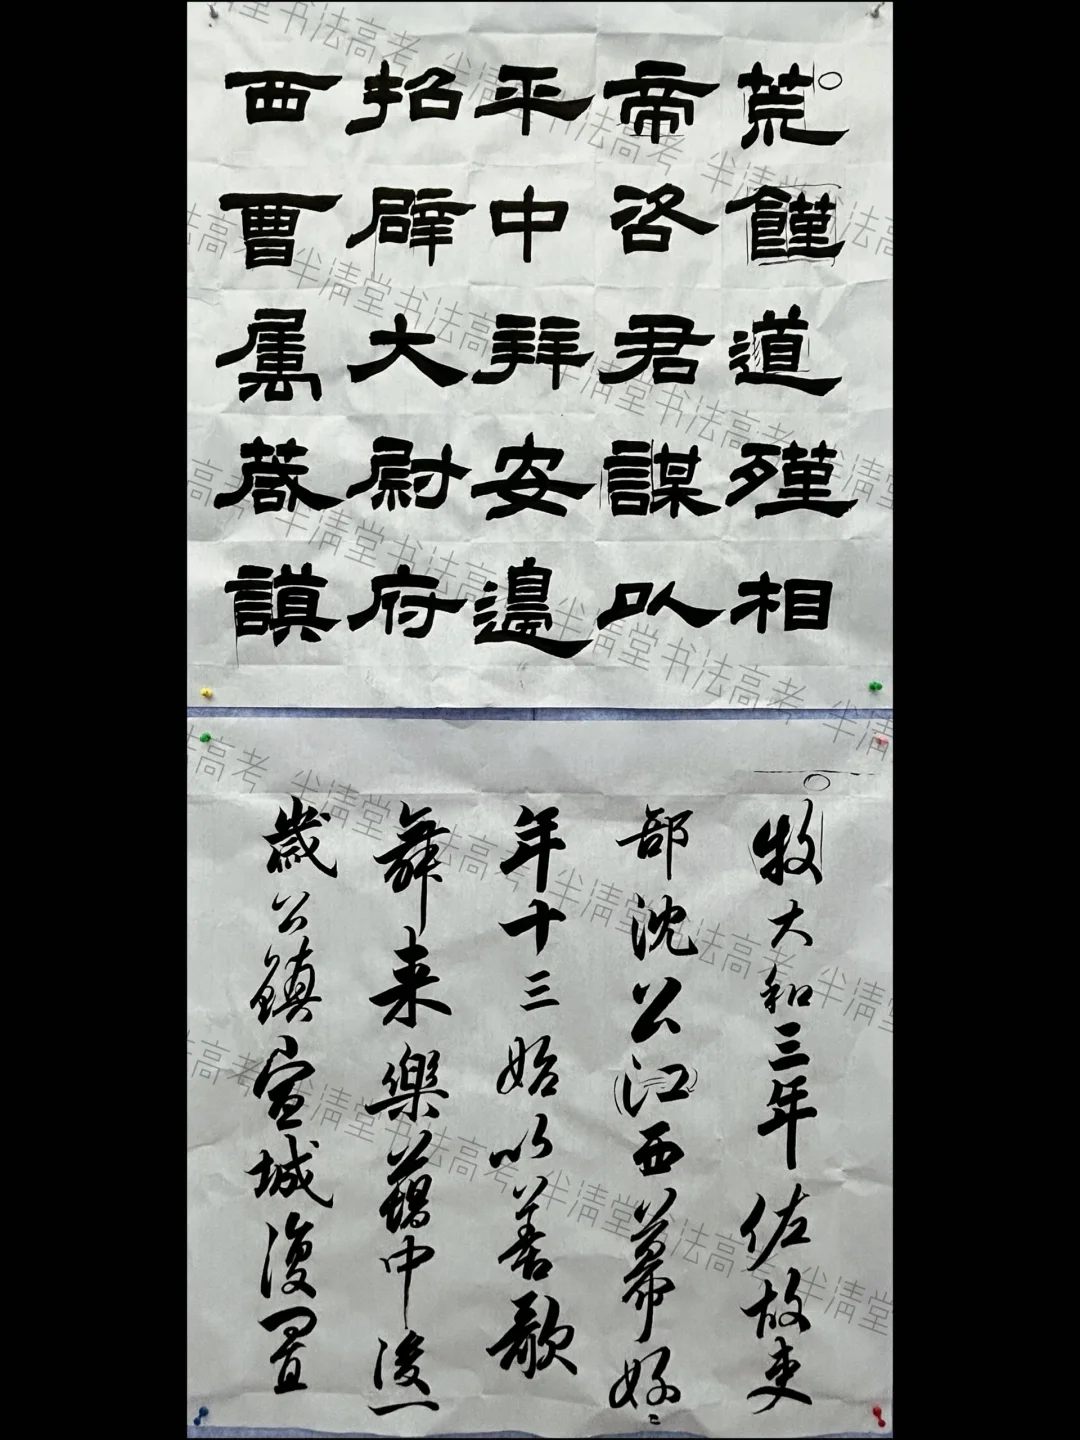 荒饉道殣相
帝咨君謀以
平中拜安邊
招辟大尉府
西曹属
牧大和三年佐故吏
部沈公江西幕好〻
年十三始以善歌
舞来樂籍中後一
歲公鎮宣城復置
半清堂书法高考